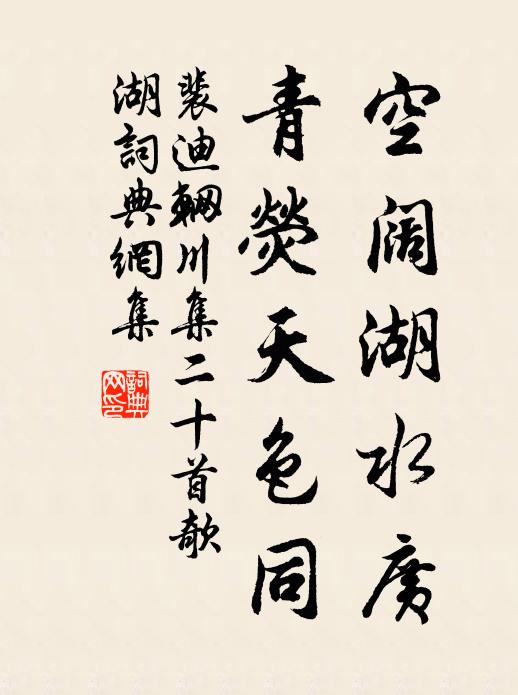 空阔湖水廣
青熒天色同
裴迪輞川集二十首欹
湖詞典網集
詞典
网印